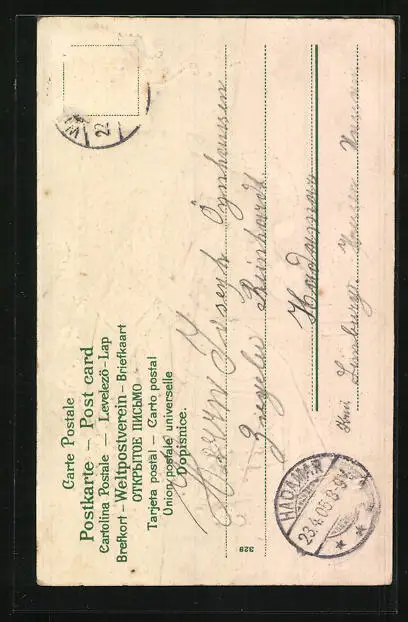 Carte Postale
Postkarte – Post card
Cartolina Postale – Levelező-Lap
Brefkort – Weltpostverein – Briefkaart
ОТКРЫТОЕ ПИСЬМО
Tarjeta postal – Carto postal
Union postale universelle
Dopisnice.
22
Herrn Joseph
Reinhardt
Hadamar
Limburg Hessen Nassau
HADAMAR
23.4.05.8-9V
328